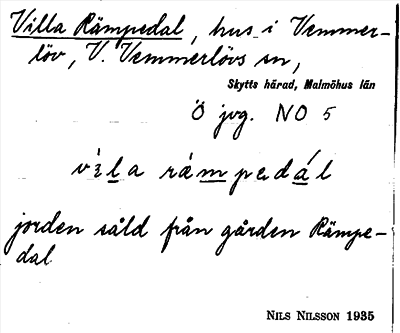 Villa Rämpedal, hus i Vemmer-
löv, V. Vemmerlövs sn,
Skytts härad, Malmöhus län
Ö jvg. NO 5
jorden såld från gården Rämpe-
dal
NILS NILSSON 1935